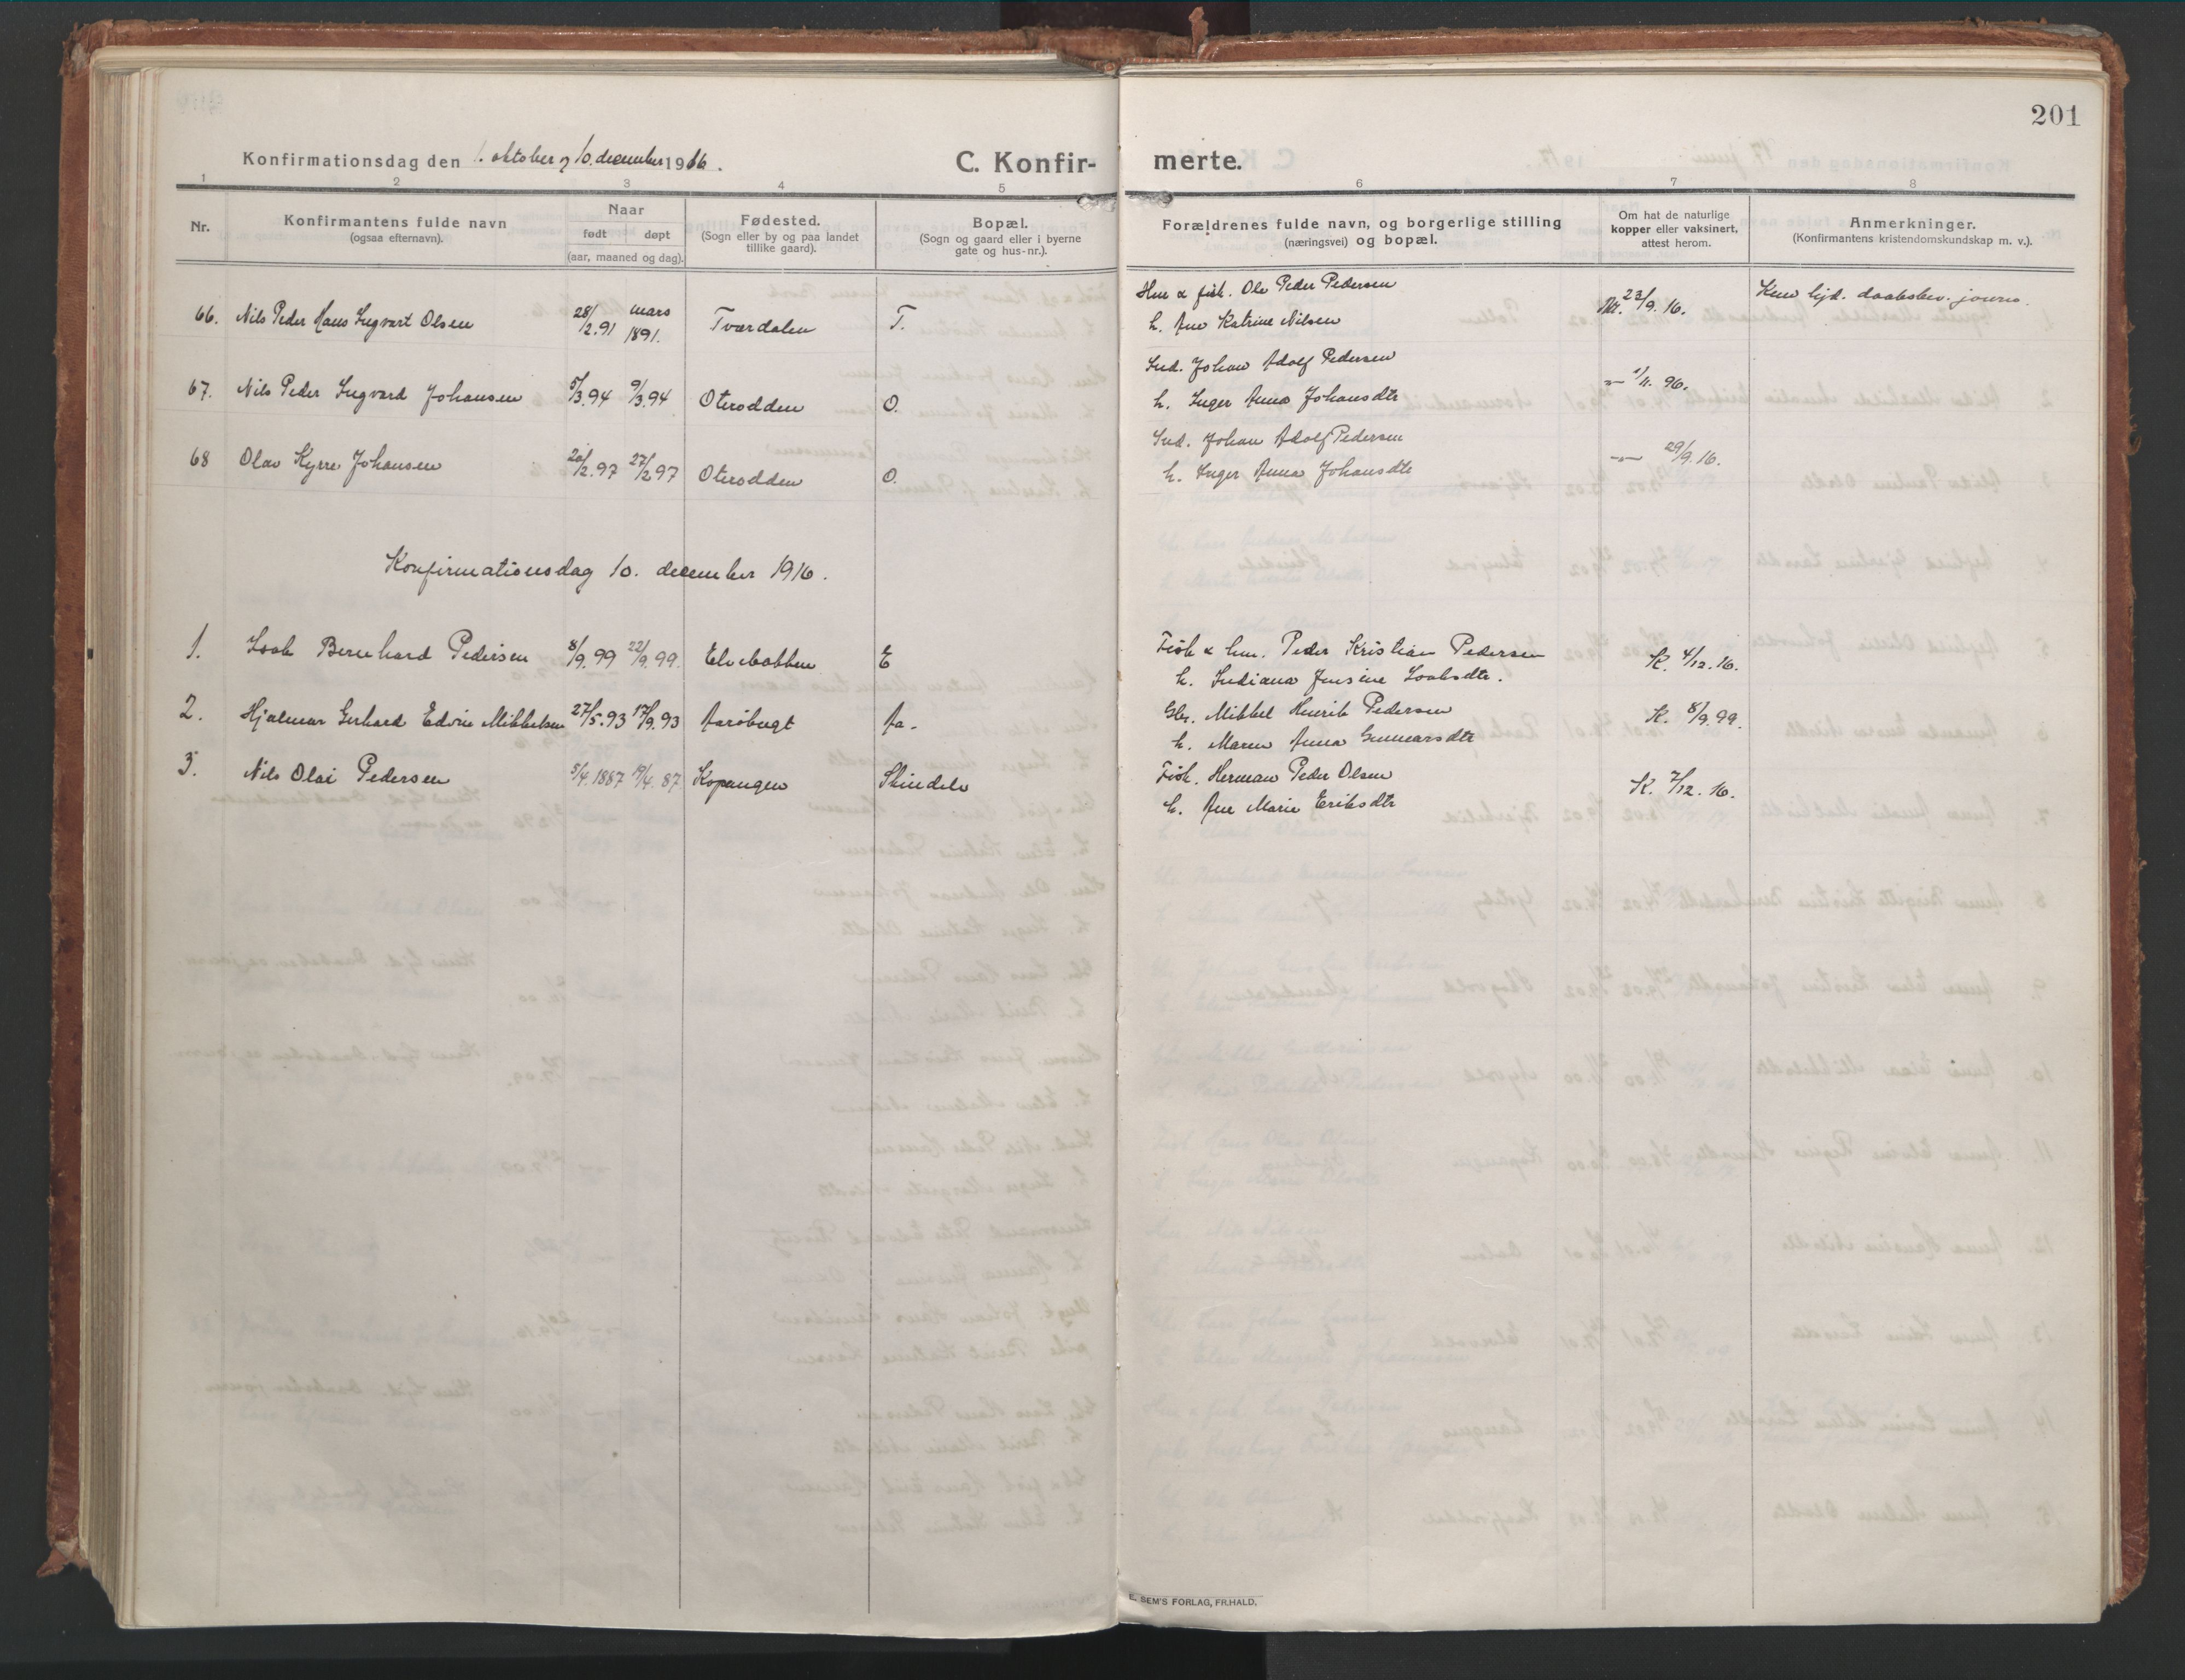 201
Konfirmationsdag den 1. oktober og 10. december 1916.
C. Konfir-
merte.
1 2 3 4 5 6 7 8
Nr.
Konfirmantens fulde navn
(ogsaa efternavn).
Naar
født døpt
(aar, maaned og dag).
Fødested.
(Sogn eller by og paa landet
tillike gaard).
Bopæl.
(Sogn og gaard eller i byerne
gate og hus-nr.).
Forældrenes fulde navn, og borgerlige stilling
(næringsvei) og bopæl.
Om hat de naturlige
kopper eller vaksinert,
attest herom.
Anmerkninger.
(Konfirmantens kristendomskundskap m. v.).
66. Nils Peder Hans Ingvart Olsen 28/2.91 mars 1891. Tværdalen T.
Hm & fisk. Ole Peder Pedersen
h. Ane Katrine Nilsen
23/9. 16.
Kun hjd. daabsbev. journ.
67. Nils Peder Ingvard Johansen 5/3.94 9/3.94 Oterodden O.
Ind. Johan Adolf Pedersen
h. Inger Anna Johansdtr
— 1/11. 96.
68 Olav Kyrre Johansen 20/2.97 27/2.97 Oterodden O.
Ind. Johan Adolf Pedersen
h. Inger Anna Johansdtr
— 29/9. 16.
Konfirmationsdag 10. december 1916.
1. Isak Bernhard Pedersen 8/9.99 22/9.99. Elvebakken E
Fisk & hm. Peder Kristian Pedersen
h. Indiana Jensine Isaksdtr.
K. 4/12. 16.
2. Hjalmar Gerhard Edvin Mikkelsen 27/5.93 17/9.93 Aarøbugt Aa.
Gbr. Mikkel Henrik Pedersen
h. Maren Anna Gunnarsdtr
K. 8/9. 99.
3. Nils Olai Pedersen 5/4.1887 19/4.87 Kopangen Skindelv
Fisk. Herman Peder Olsen
h. Ane Marie Eriksdtr
K. 7/12. 16.
E. SEM'S FORLAG, FR.HALD.